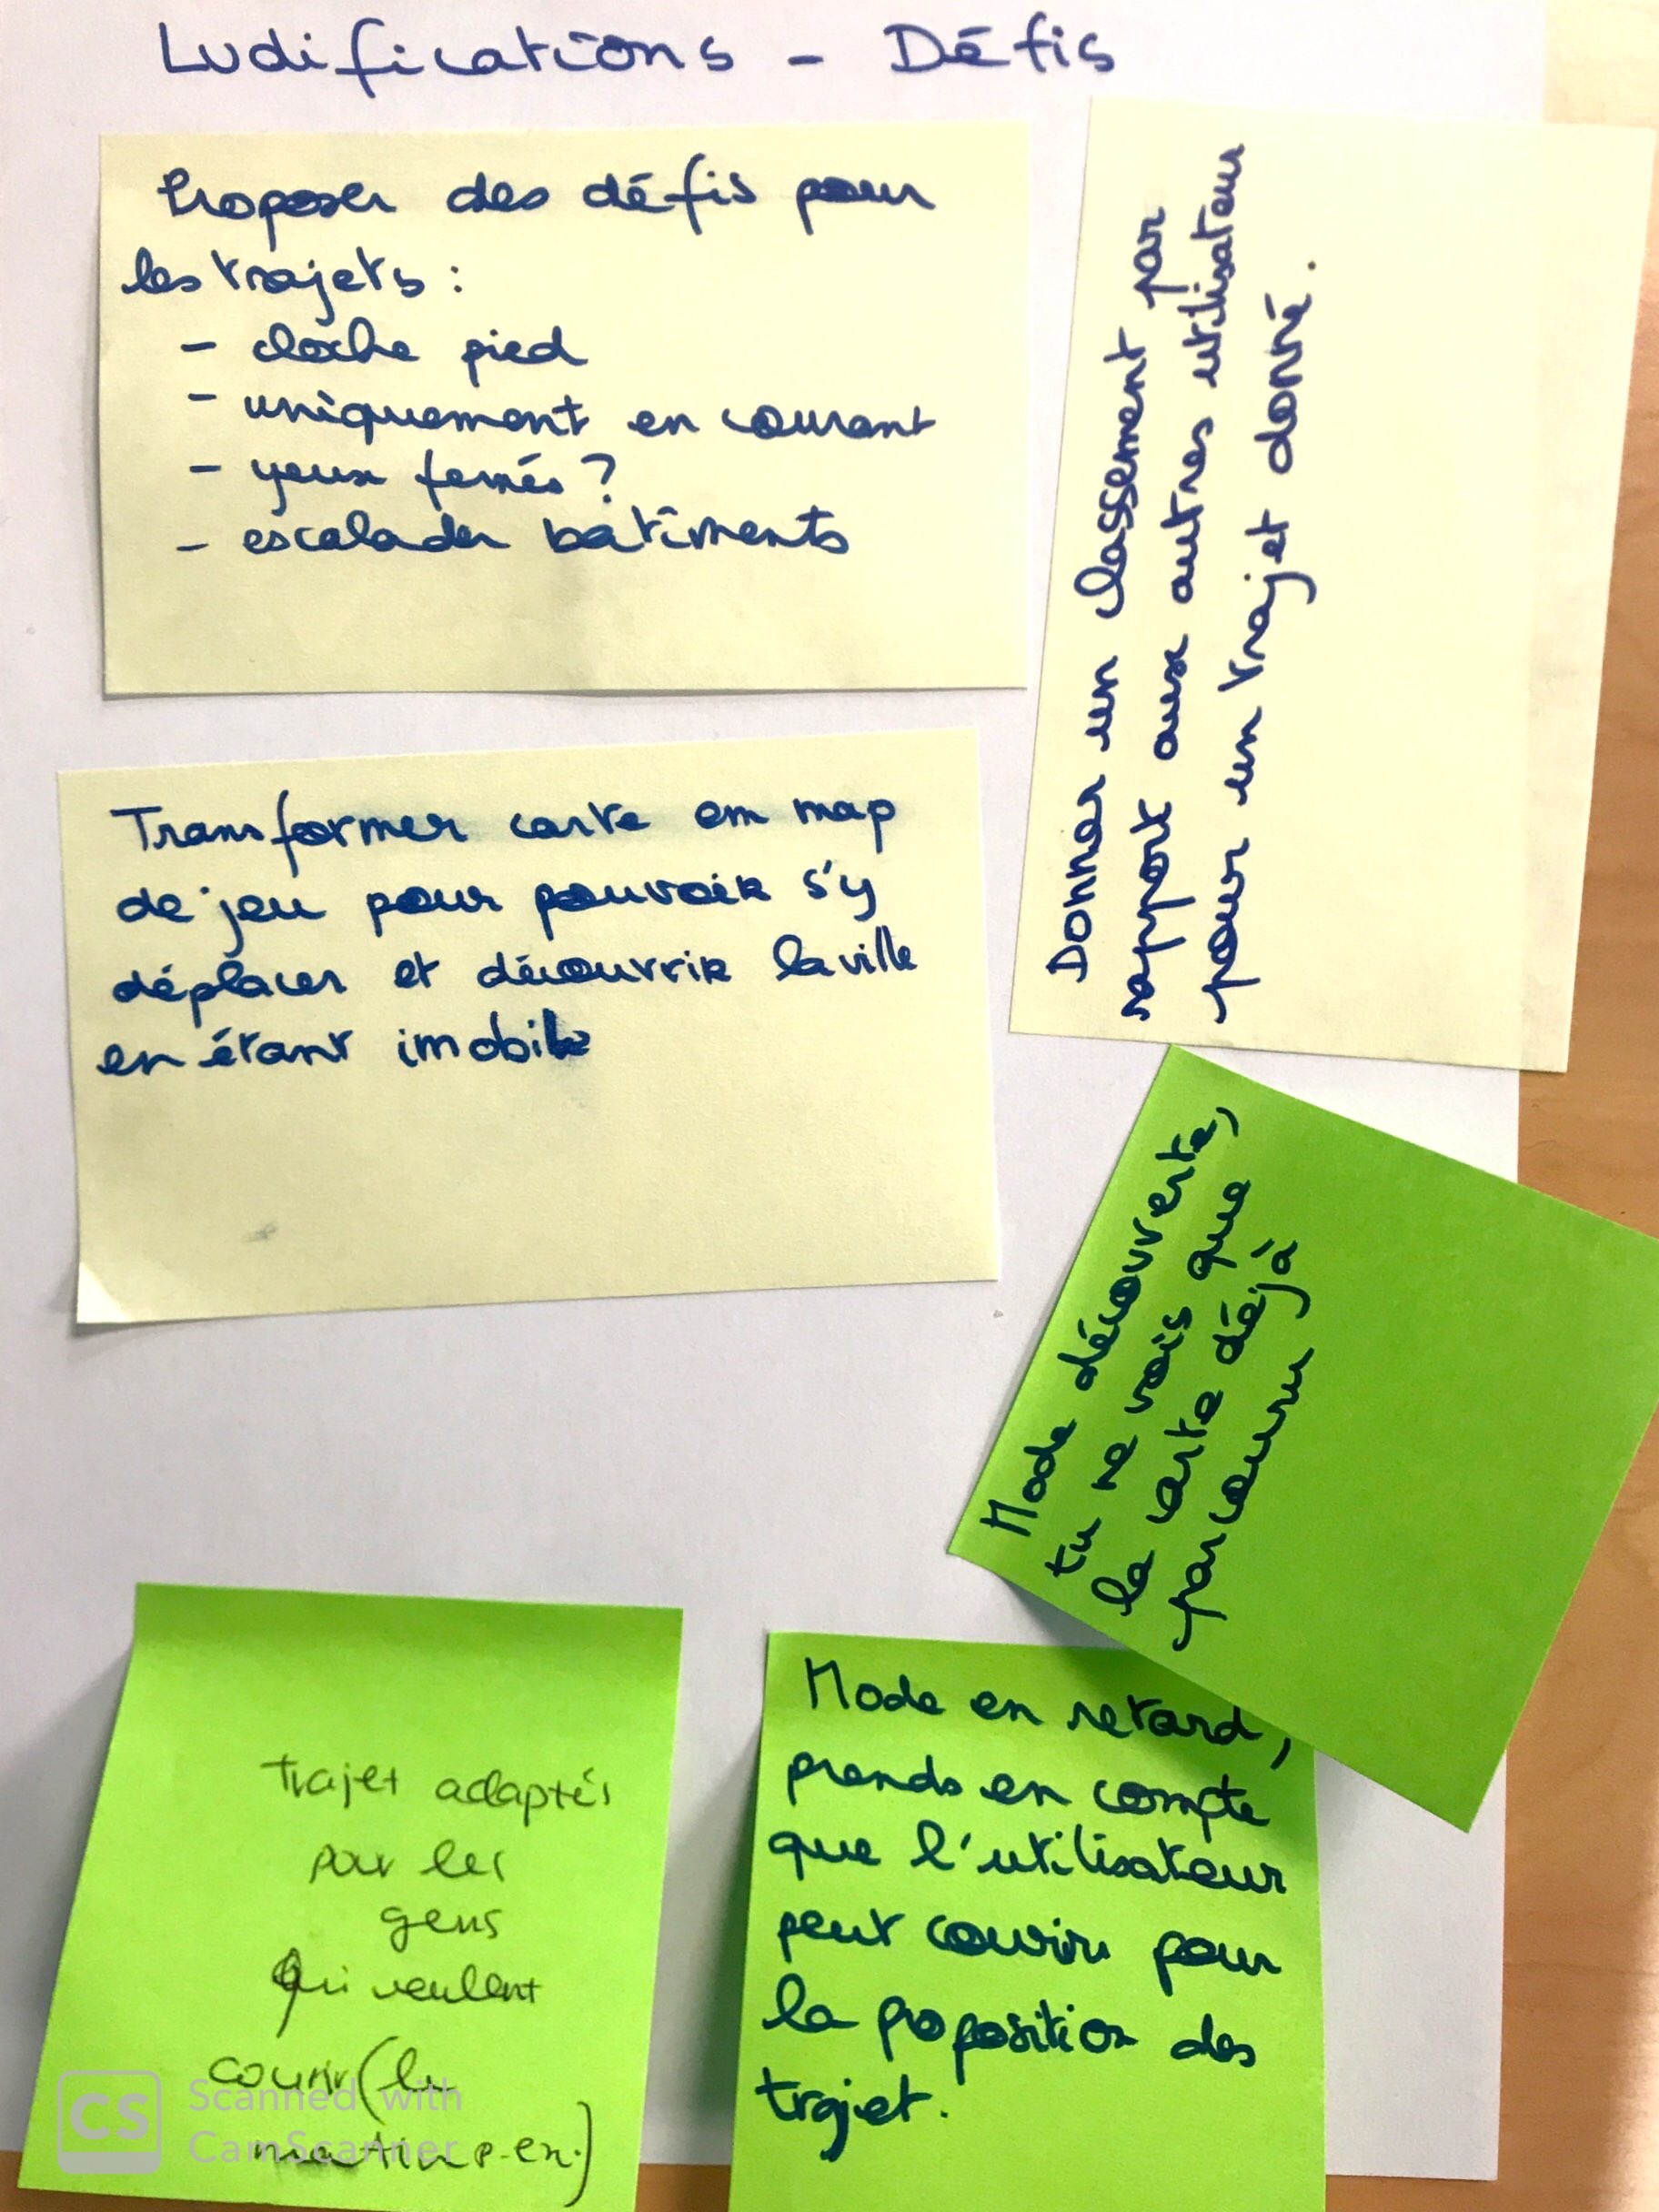 Ludifications - Défis
Proposer des défis pour
les trajets :
- cloche pied
- uniquement en courant
- yeux fermés ?
- escalader bâtiments
Donner un classement par
rapport aux autres utilisateur
pour un trajet donné.
Transformer carte em map
de jeu pour pouvoir s'y
déplacer et découvrir la ville
en étant imobile
Mode découverte,
tu ne vois que
la carte déjà
parcouru
trajet adaptés
pour les
gens
qui veulent
courir (le
matin p.ex.)
Mode en retard,
prends en compte
que l'utilisateur
peut courir pour
la proposition des
trajet.
CS
Scanned with
CamScanner